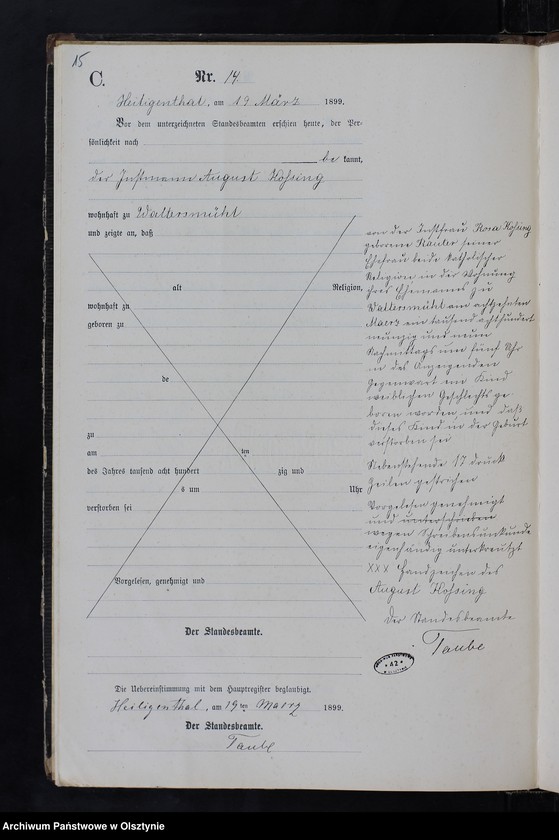 15
C.
Nr. 14
Heiligenthal, am 19 März 1899.
Vor dem unterzeichneten Standesbeamten erschien heute, der Per-
sönlichkeit nach
be kannt,
der Instmann August Hossing
wohnhaft zu Wallersmühl
und zeigte an, daß
alt Religion,
wohnhaft zu
geboren zu
de
zu
am ten
des Jahres tausend acht hundert zig und
s um Uhr
verstorben sei
Vorgelesen, genehmigt und
Der Standesbeamte.
von der Instfrau Rosa Hossing
geborene seiner
Ehefrau beide katholischer
Religion in der Wohnung
ihres Ehemanns zu
Wallersmühl am achtzehnten
Maerz ein tausend achthundert
neunzig und neun
Nachmittags um fünf Uhr
in des Anzeigenden
Gegenwart ein Kind
weiblichen Geschlechts ge-
boren worden, und daß
dieses Kind in der Geburt
verstorben sei
Nebenstehende 17 Druck
Zeilen gestrichen
Vorgelesen genehmigt
und unterschrieben
wegen Schreibensunkunde
eigenhändig unterkreuzt
XXX Handzeichen des
August Hossing
Der Standesbeamte
Taube
42
Die Uebereinstimmung mit dem Hauptregister beglaubigt.
Heiligenthal, am 19ten Maerz 1899.
Der Standesbeamte.
Taube
Archiwum Państwowe w Olsztynie